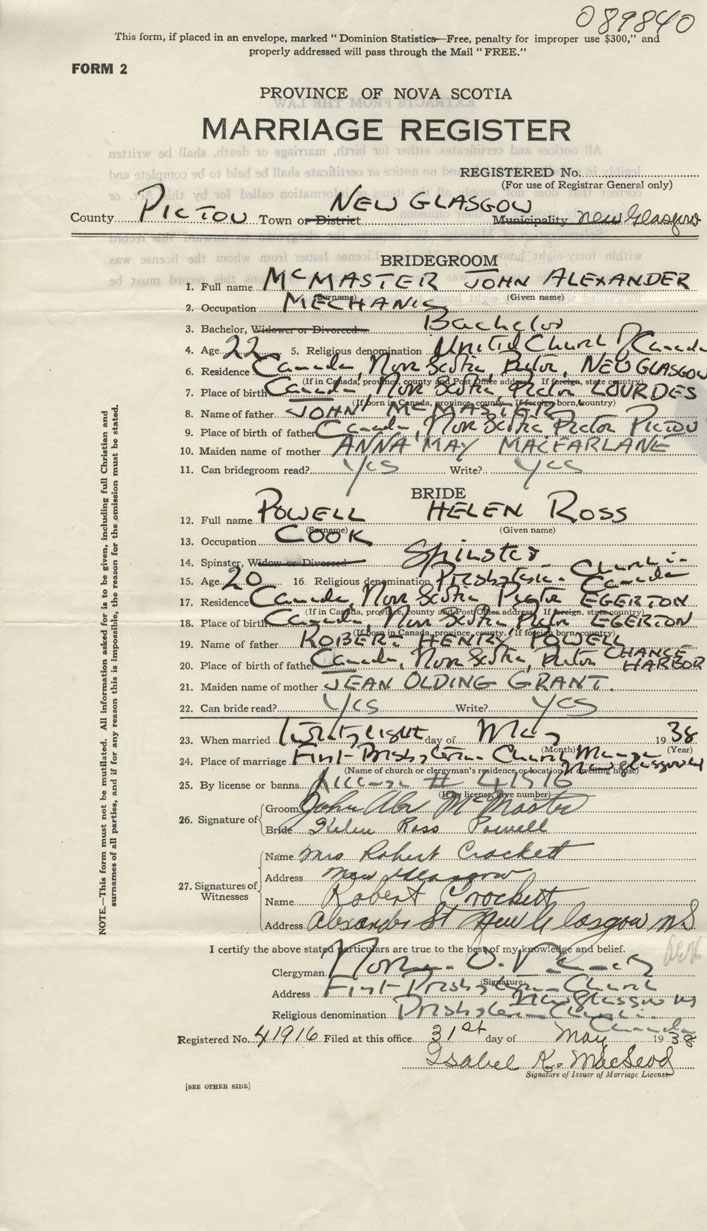 089840
This form, if placed in an envelope, marked "Dominion Statistics—Free, penalty for improper use $300," and
properly addressed will pass through the Mail "FREE."
FORM 2
PROVINCE OF NOVA SCOTIA
MARRIAGE REGISTER
REGISTERED No.
(For use of Registrar General only)
County PICTOU Town or District NEW GLASGOW Municipality New Glasgow
BRIDEGROOM
1. Full name McMASTER JOHN ALEXANDER
(Surname) (Given name)
2. Occupation MECHANIC
3. Bachelor, Widower or Divorced Bachelor
4. Age 22 5. Religious denomination United Church Canada
6. Residence Canada, Nova Scotia, Pictou, NEW GLASGOW
(If in Canada, province, county and Post Office address. If foreign, state country)
7. Place of birth Canada, Nova Scotia Pictou LOURDES
(If born in Canada, province, county. If foreign born country)
8. Name of father JOHN McMASTER
9. Place of birth of father Canada, Nova Scotia Pictou PICTOU
10. Maiden name of mother ANNA MAY MACFARLANE
11. Can bridegroom read? Yes Write? Yes
BRIDE
12. Full name POWELL HELEN ROSS
(Surname) (Given name)
13. Occupation COOK
14. Spinster, Widow or Divorced Spinster
15. Age 20 16. Religious denomination Presbyterian Church in Canada
17. Residence Canada, Nova Scotia Pictou EGERTON
(If in Canada, province, county and Post Office address. If foreign, state country)
18. Place of birth Canada, Nova Scotia Pictou EGERTON
(If born in Canada, province, county. If foreign born country)
19. Name of father ROBERT HENRY POWELL
20. Place of birth of father Canada, Nova Scotia, Pictou CHANCE HARBOR
21. Maiden name of mother JEAN OLDING GRANT.
22. Can bride read? Yes Write? Yes
23. When married day of May 1938
(Month) (Year)
24. Place of marriage First Presbyterian Church Manse New Glasgow
(Name of church or clergyman's residence or location of dwelling house)
25. By license or banns License # 41916
(If by license, give number)
26. Signature of Groom John Alex McMaster
Bride Helen Ross Powell
27. Signatures of Witnesses
Name Mrs Robert Crockett
Address New Glasgow
Name Robert Crockett
Address Alexander St New Glasgow NS
I certify the above stated particulars are true to the best of my knowledge and belief.
Clergyman
(Signature)
Address First Presbyterian Church New Glasgow NS
Religious denomination Presbyterian Church in Canada
Registered No. 41916 Filed at this office 31st day of May 1938
Isabel K. MacLeod
Signature of Issuer of Marriage License
[SEE OTHER SIDE]
NOTE.—This form must not be mutilated. All information asked for is to be given, including full Christian and
surnames of all parties, and if for any reason this is impossible, the reason for the omission must be stated.